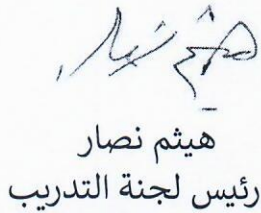 هيثم نصار
رئيس لجنة التدريب